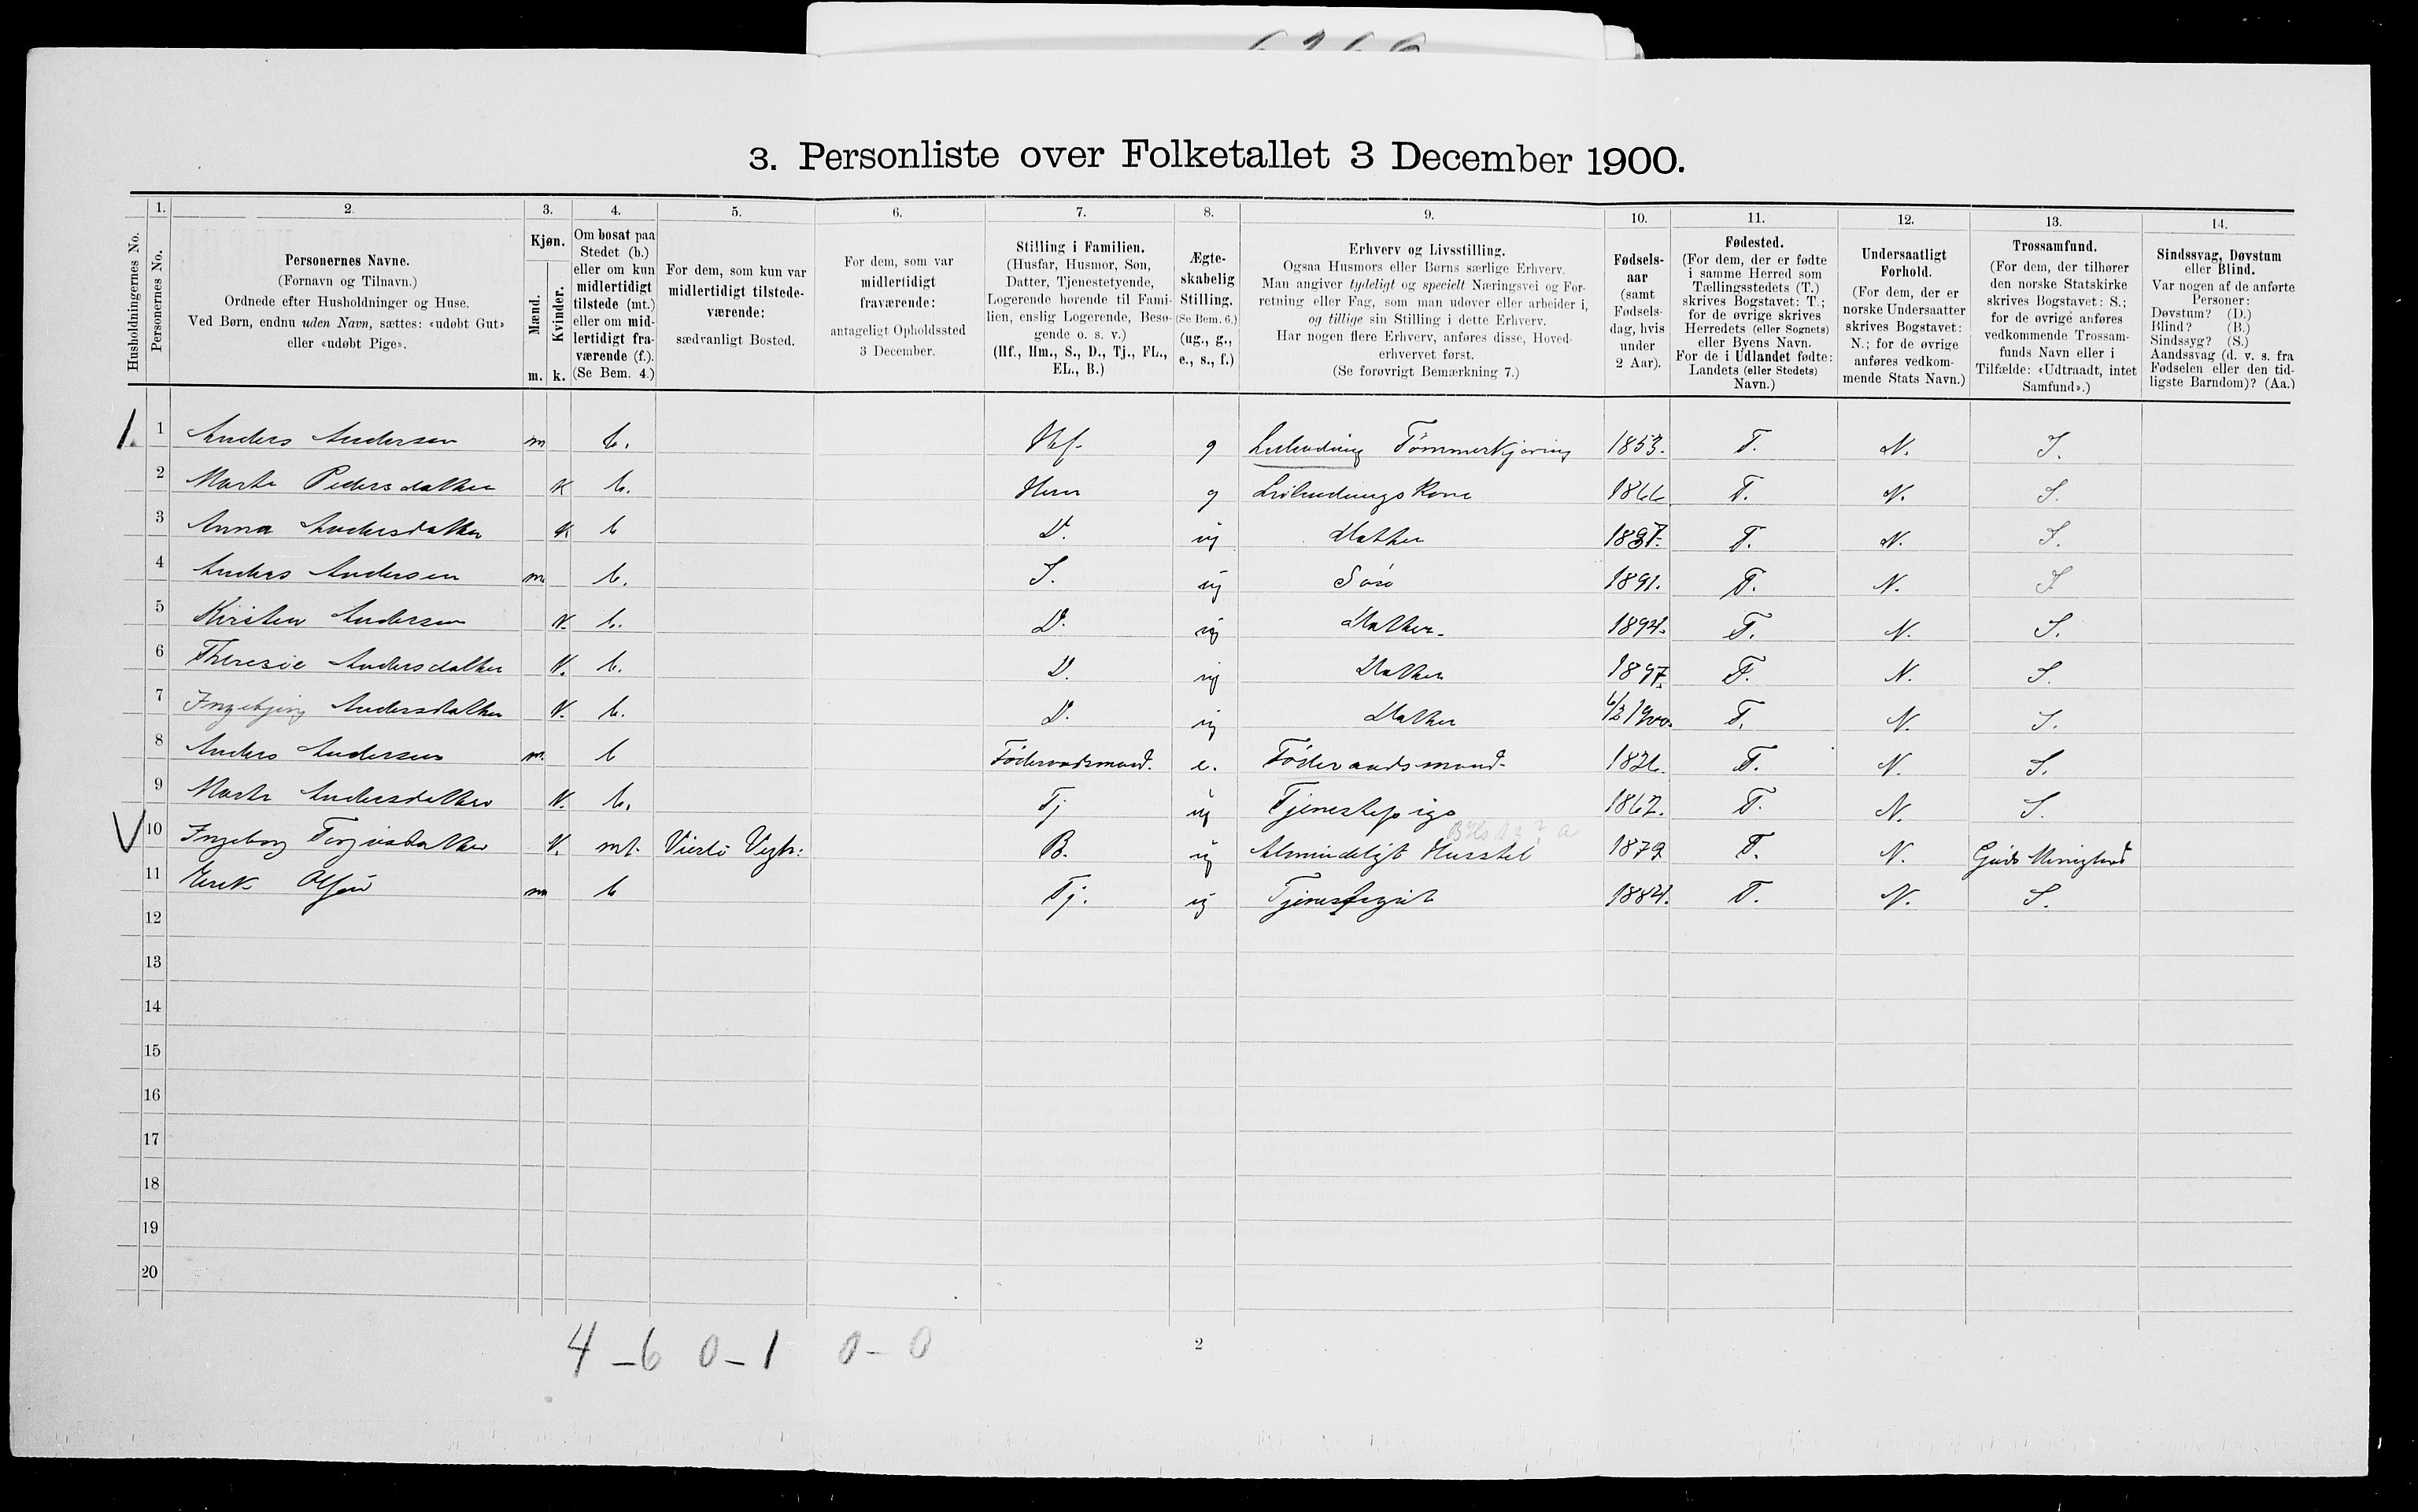 3. Personliste over Folketallet 3 December 1900.
Husholdningernes No.
1. Personernes No.
2. Personernes Navne.
(Fornavn og Tilnavn.)
Ordnede efter Husholdninger og Huse.
Ved Børn, endnu uden Navn, sættes: «udøbt Gut»
eller «udøbt Pige».
3. Kjøn.
Mænd. m.
Kvinder. k.
4. Om bosat paa
Stedet (b.)
eller om kun
midlertidigt
tilstede (mt.)
eller om mid-
lertidigt fra-
værende (f.).
(Se Bem. 4.)
5. For dem, som kun var
midlertidigt tilstede-
værende:
sædvanligt Bosted.
6. For dem, som var
midlertidigt
fraværende:
antageligt Opholdssted
3 December.
7. Stilling i Familien.
(Husfar, Husmor, Søn,
Datter, Tjenestetyende,
Logerende hørende til Fami-
lien, enslig Logerende, Besø-
gende o. s. v.)
(Hf., Hm., S., D., Tj., FL.,
EL., B.)
8. Ægte-
skabelig
Stilling.
(Se Bem. 6.)
(ug., g.,
e., s., f.)
9. Erhverv og Livsstilling.
Ogsaa Husmors eller Børns særlige Erhverv.
Man angiver tydeligt og specielt Næringsvei og For-
retning eller Fag, som man udøver eller arbeider i,
og tillige sin Stilling i dette Erhverv.
Har nogen flere Erhverv, anføres disse, Hoved-
erhvervet først.
(Se forøvrigt Bemærkning 7.)
10. Fødsels-
aar
(samt
Fødsels-
dag, hvis
under
2 Aar).
11. Fødested.
(For dem, der er fødte
i samme Herred som
Tællingsstedets (T.)
skrives Bogstavet: T.;
for de øvrige skrives
Herredets (eller Sognets)
eller Byens Navn.
For de i Udlandet fødte:
Landets (eller Stedets)
Navn.)
12. Undersaatligt
Forhold.
(For dem, der er
norske Undersaatter
skrives Bogstavet:
N.; for de øvrige
anføres vedkom-
mende Stats Navn.)
13. Trossamfund.
(For dem, der tilhører
den norske Statskirke
skrives Bogstavet: S.;
for de øvrige anføres
vedkommende Trossam-
funds Navn eller i
Tilfælde: «Udtraadt, intet
Samfund».)
14. Sindssvag, Døvstum
eller Blind.
Var nogen af de anførte
Personer:
Døvstum? (D.)
Blind? (B.)
Sindssyg? (S.)
Aandssvag (d. v. s. fra
Fødselen eller den tid-
ligste Barndom)? (Aa.)
1. 1 Anders Andersen m b. Hf. g Tømmerkjøring 1853. T. N. S.
2 Marte Pedersdatter K b. Hm g kone 1866 T. N. S.
3 Anna Andersdatter K b D. ug Datter T. N. S.
4 Anders Andersen m b. S. ug Søn 1891. T. N. S
5 Kirsten Andersen K. b. D. ug Datter. 1894. T. N. S.
6 Theresie Andersdatter K. b. D. ug Datter 1897. T. N. S.
7 Andersdatter K. b. D. ug Datter 6/2 1900. T. N. S.
8 Anders Andersen m. b Føderaadsmand. e. Føderaadsmand 1826. T. N. S.
9 Marte Andersdatter K. b. Tj ug Tjenestepige 1862. T. N. S.
10 Ingeborg K. mt. B. ug Almindeligt Husstel 1879 T. N.
11 Erik Olsen m b Tj. ug Tjenestegut 1884. T. N. S.
12
13
14
15
16
17
18
19
20
4 – 6 0 – 1 0 – 0
2